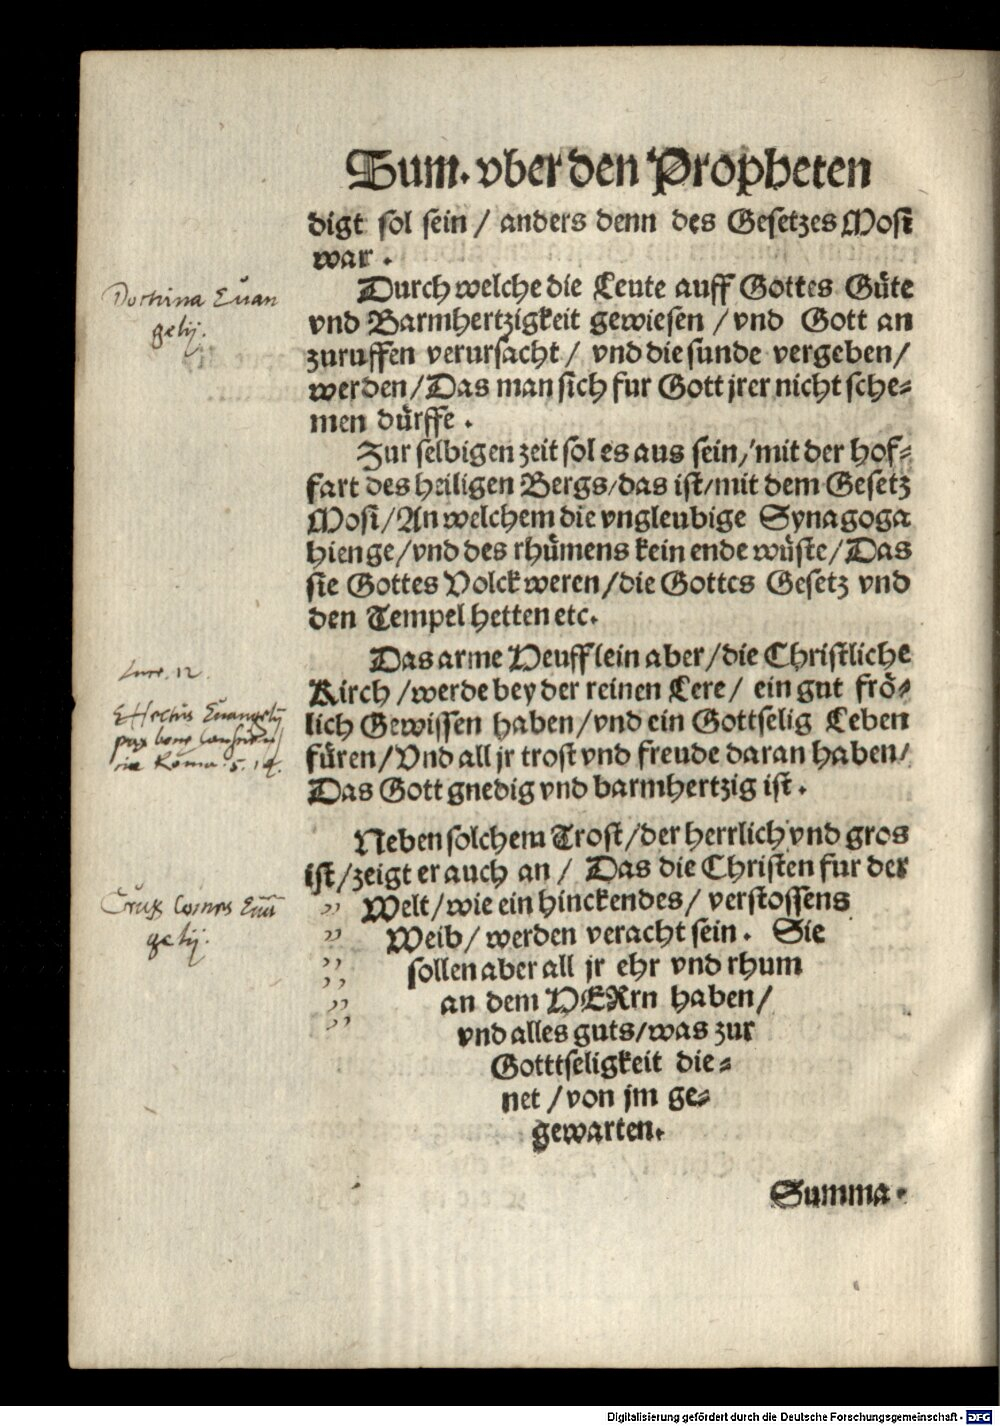 Sum. vber den Propheten
digt sol sein / anders denn des Gesetzes Mosi
war .
Durch welche die Leute auff Gottes Güte
vnd Barmhertzigkeit gewiesen / vnd Gott an
zuruffen verursacht / vnd die sunde vergeben /
werden / Das man sich fur Gott jrer nicht sche=
men dürffe .
Zur selbigen zeit sol es aus sein / mit der hof=
fart des heiligen Bergs / das ist / mit dem Gesetz
Mosi / An welchem die vngleubige Synagoga
hienge / vnd des rhümens kein ende wüste / Das
sie Gottes Volck weren / die Gottes Gesetz vnd
den Tempel hetten etc.
Das arme Heufflein aber / die Christliche
Kirch / werde bey der reinen Lere / ein gut frö=
lich Gewissen haben / vnd ein Gottselig Leben
füren / Vnd all jr trost vnd freude daran haben /
Das Gott gnedig vnd barmhertzig ist .
Neben solchem Trost / der herrlich vnd gros
ist / zeigt er auch an / Das die Christen fur der
Welt / wie ein hinckendes / verstossens
Weib / werden veracht sein . Sie
sollen aber all jr ehr vnd rhum
an dem HERrn haben /
vnd alles guts / was zur
Gotttseligkeit die=
net / von jm ge=
gewarten.
Summa .
Doctrina Euan
gelij.
Luce. 12.
Effectus Euangelij
pax
Roma. 5. 14.
Crux Comes Euā
gelij.
Digitalisierung gefördert durch die Deutsche Forschungsgemeinschaft - DFG